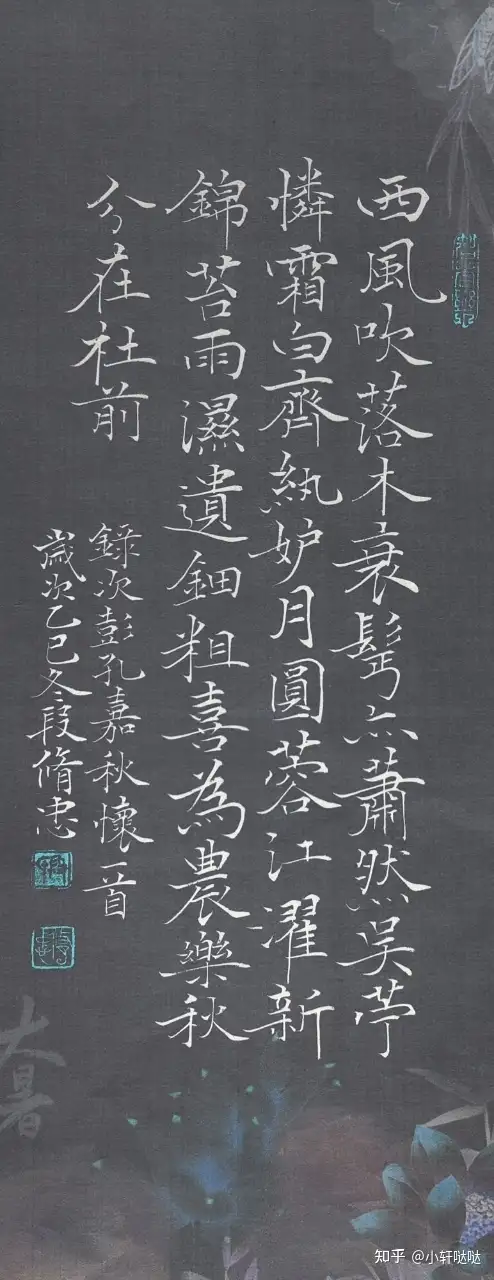 西風吹落木衰髩亦蕭然吳苧
憐霜白齊紈妒月圓蓉江濯新
錦苔雨濕遺鈿粗喜為農樂秋
分在社前
錄次彭孔嘉秋懷一首
歲次乙巳冬段脩忠
大暑
知乎 @小轩哒哒